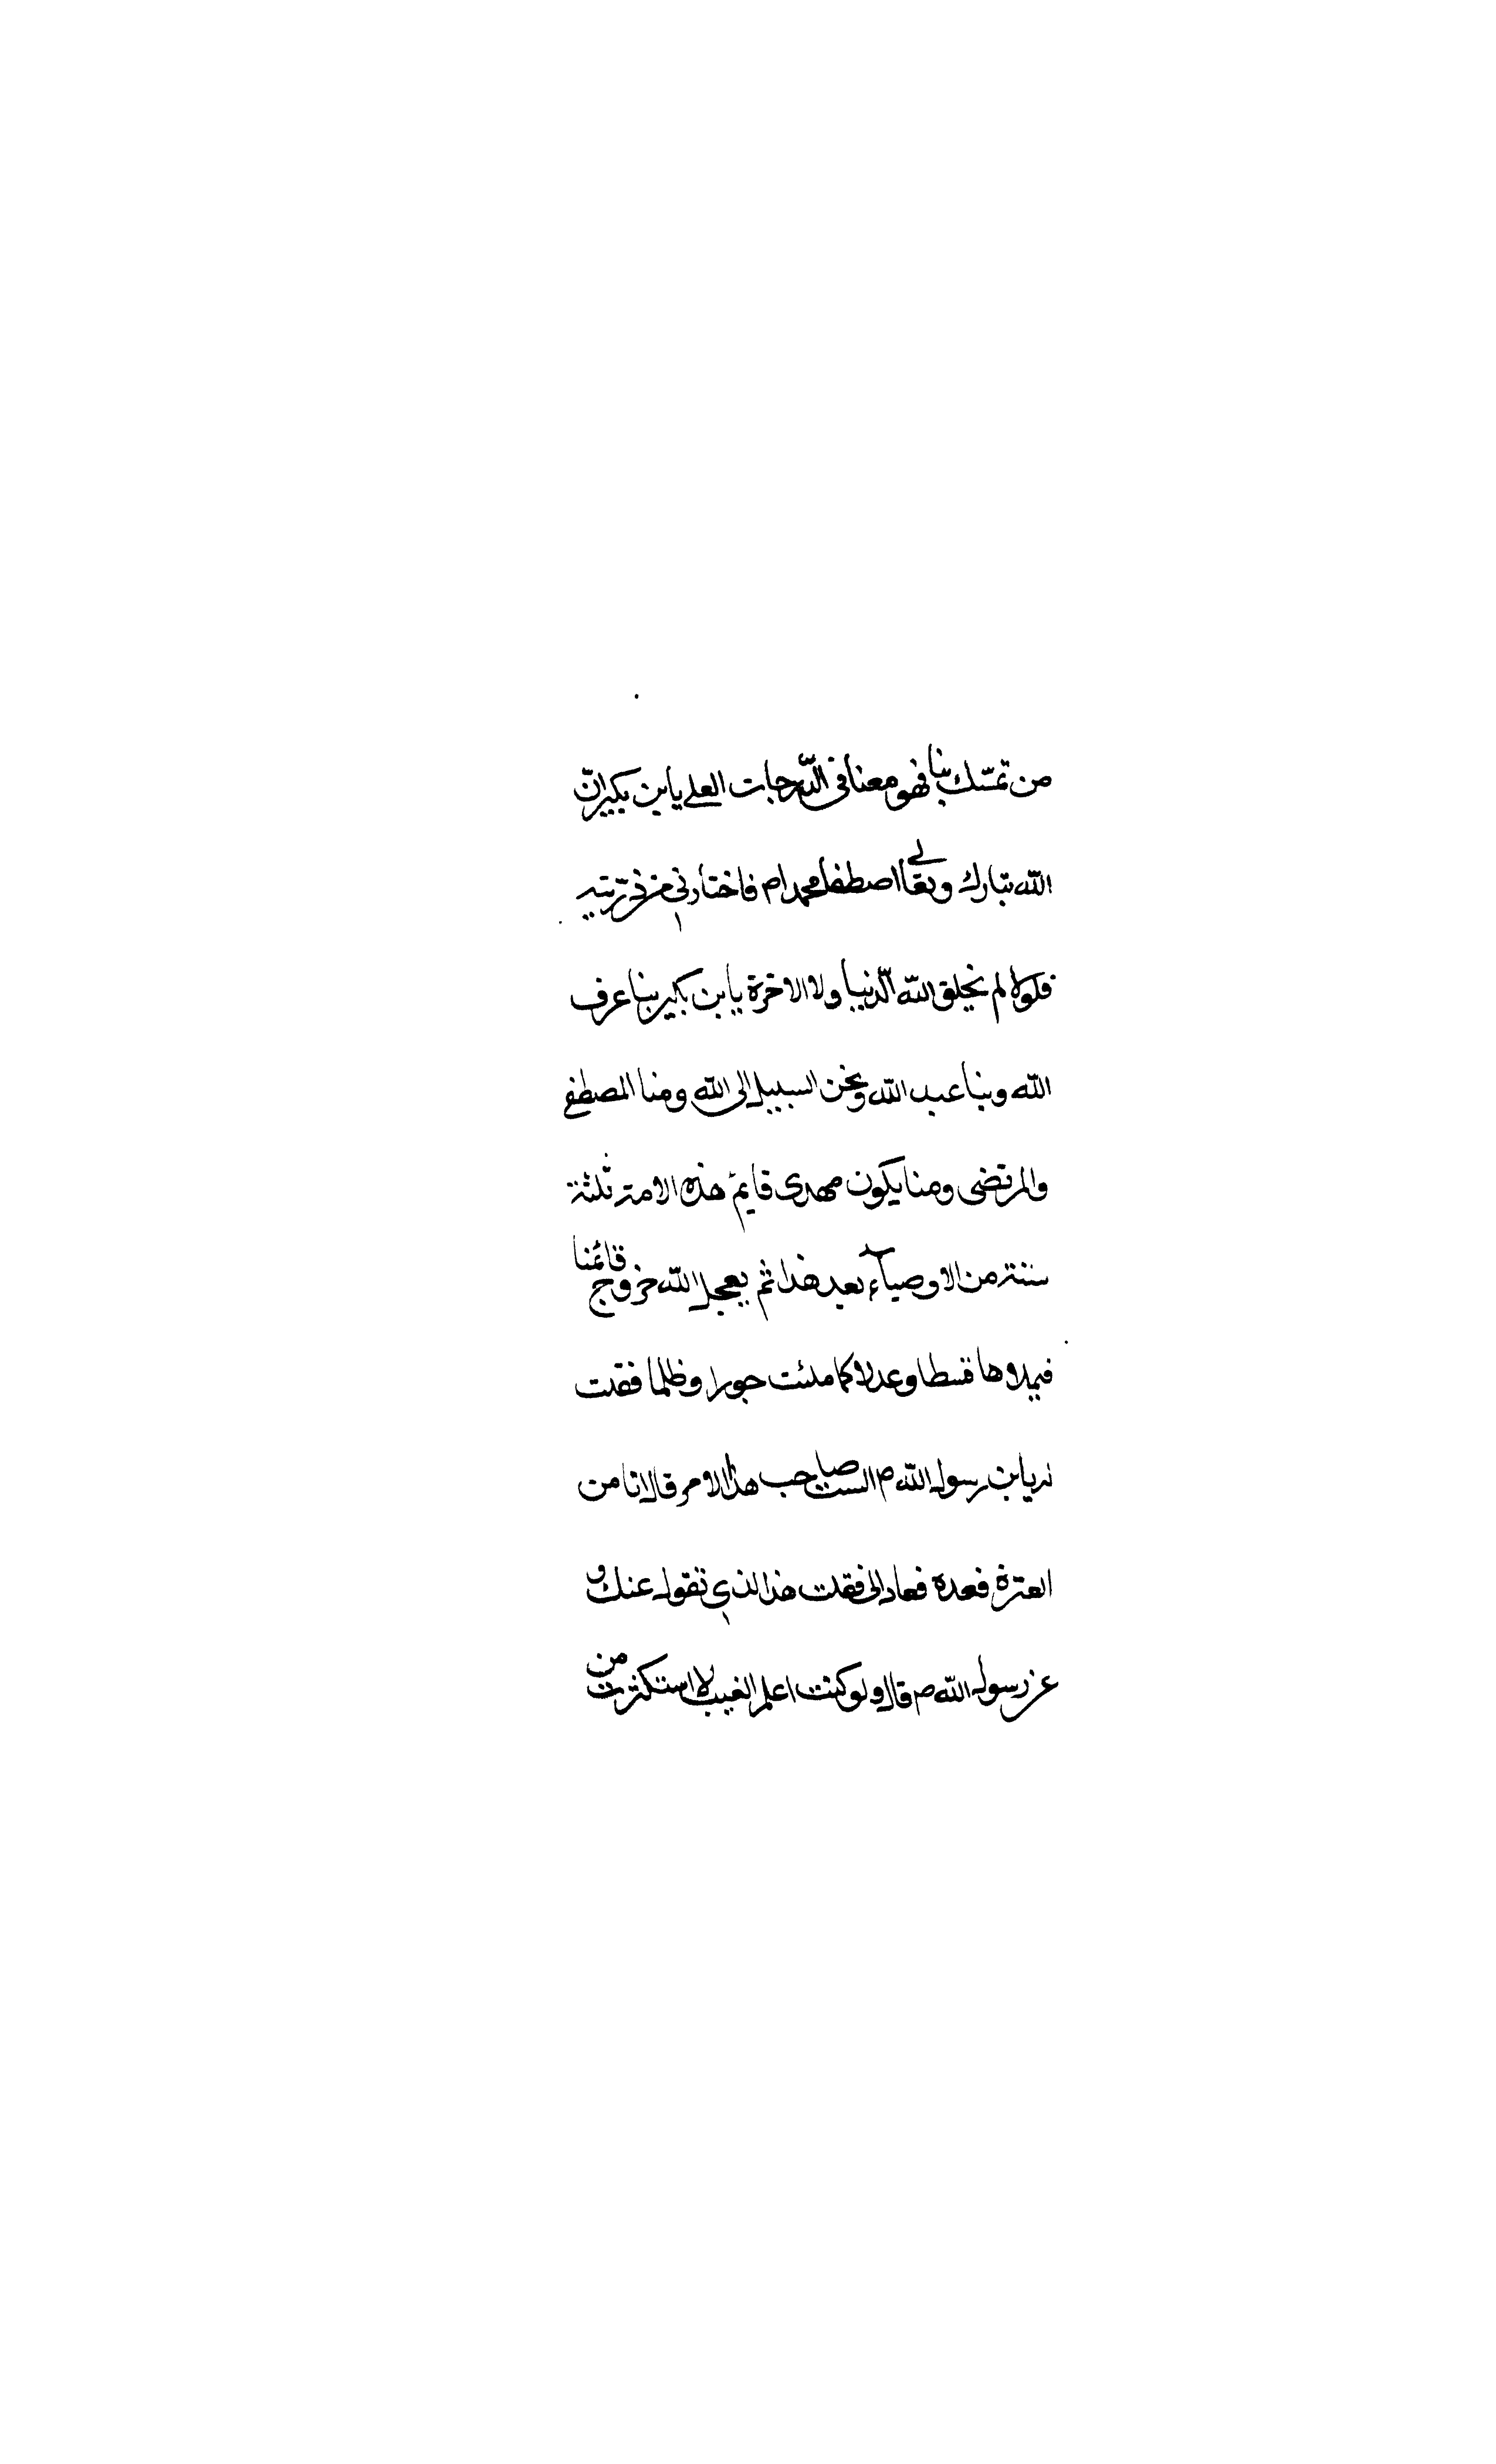 من تمسّك بنا فهو معنا في الدّرجات العلي يابن بكير انّ
الله تبارك وتعالى اصطفا محمدا ص فاختارني من ذرّيته
فلولا لم يخلق الله الدّنيا ولا الاخرة يابن بكير بنا عرف
الله وبنا عبد الله ونحن السبيل الى الله ومنا المصطفى
والمرتضى ومنا يكون مهدى قايم هذه الامة ثلثة
ستة من الاوصيآء بعد هذا ثم يعجل الله خروج قائمنا
فيملاها قسطا وعدلا كما ملئت جورا وظلما فقلت
له يابن رسول الله ص الست صاحب هذا الامر قال انا من
العترة فعده فعاد الى فقلت هذا الذي تقوله عنك و
عن رسول الله ص قال ولو كنت اعلم الغيب لا استكثرت من